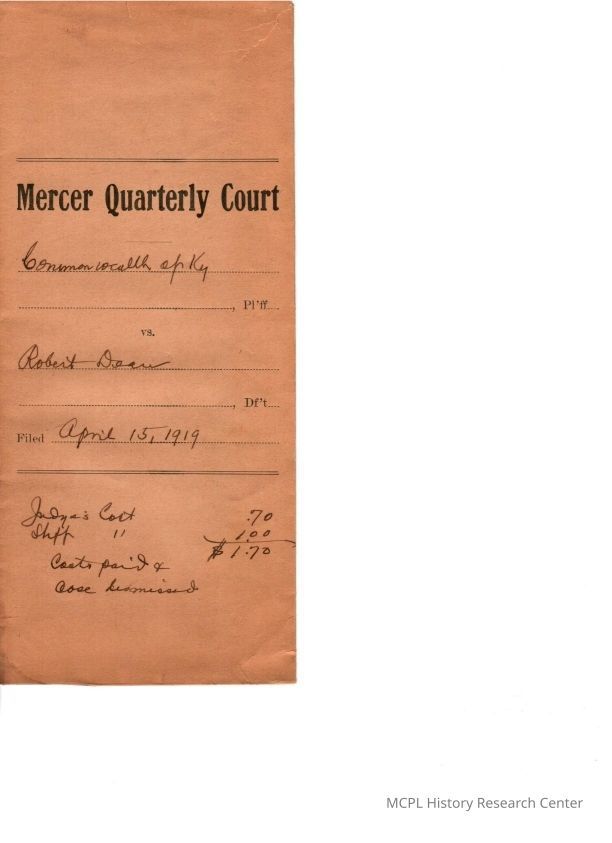 Mercer Quarterly Court
Commonwealth of Ky
, Pl'ff.
vs.
Robert Dean
, Df't.
Filed April 15, 1919
Judge's Cost .70
Shff " 1.00
$1.70
Costs paid &
case dismissed
MCPL History Research Center